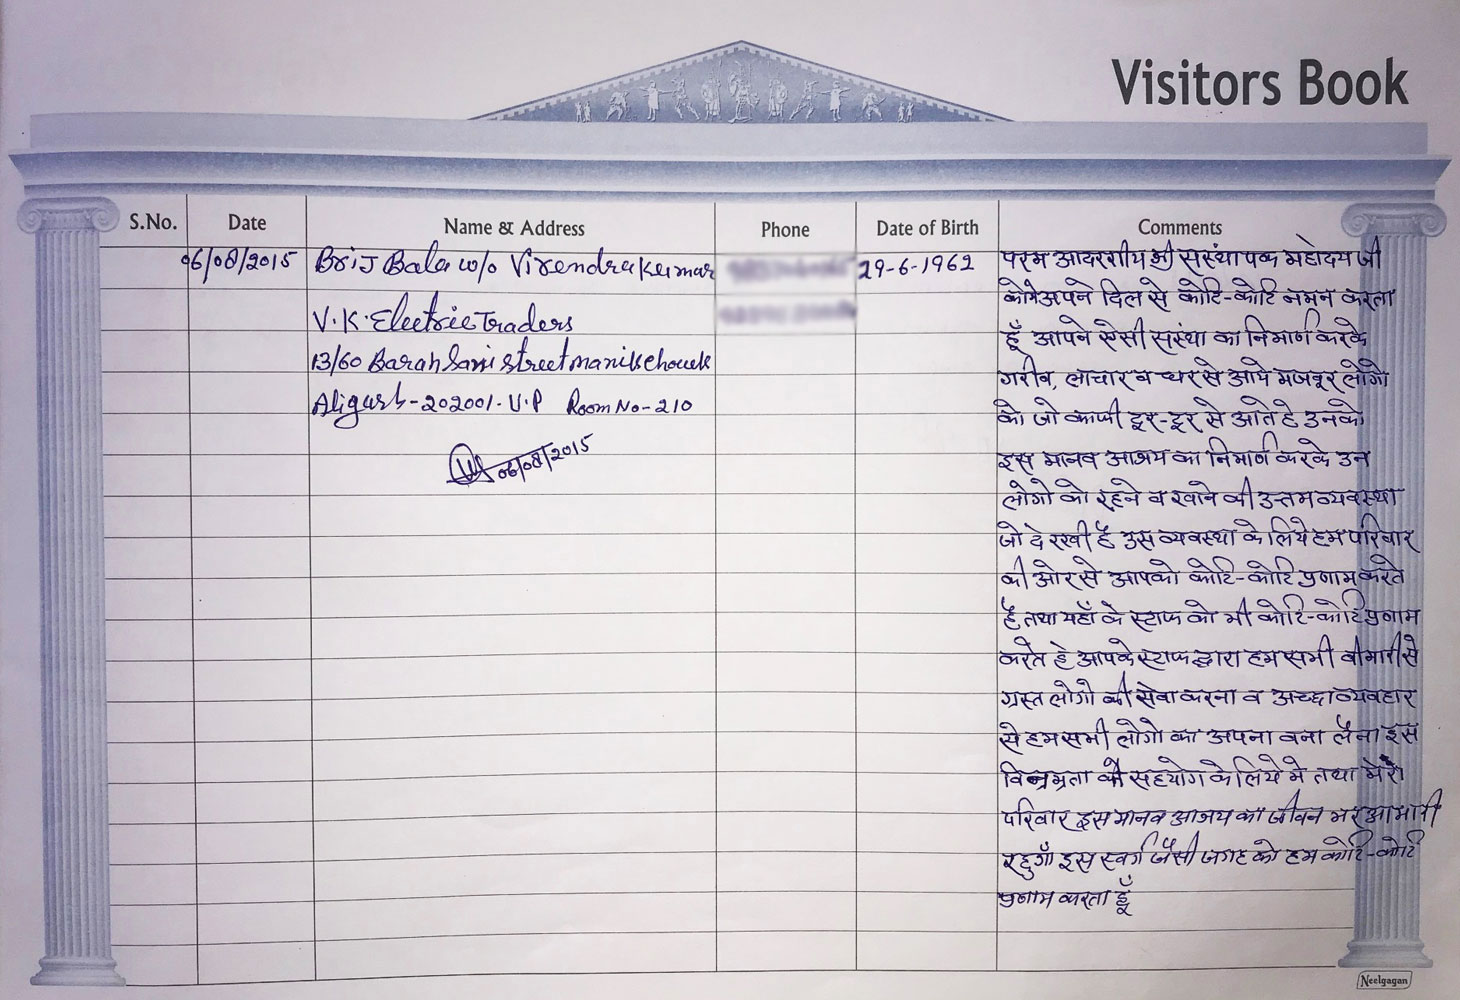 Visitors Book
S.No. Date Name & Address Phone Date of Birth Comments
06/08/2015 Brij Bala w/o Virendra Kumar 29-6-1962
V.K. Electric Traders
13/60 Barah Saini Street manik chouck
Aligarh-202001. U.P Room No-210
06/08/2015
परम आदरणीय श्री संस्थापक महोदय जी
को मे अपने दिल से कोटि-कोटि नमन करता
हूँ आपने ऐसी संस्था का निर्माण करके
गरीब, लाचार व घर से आये मजबूर लोगो
को जो काफी दूर-दूर से आते हे उनको
इस मानव आश्रय का निर्माण करके उन
लोगो को रहने व खाने की उत्तम व्यवस्था
जो दे रखी है उस व्यवस्था के लिये हम परिवार
की ओर से आपको कोटि-कोटि प्रणाम करते
है तथा यहाँ के स्टाफ को भी कोटि-कोटि प्रणाम
करते हे आपके स्टाफ द्वारा हम सभी बीमारी से
ग्रस्त लोगो की सेवा करना व अच्छा व्यवहार
से हम सभी लोगो का अपना बना लेना इस
विनम्रता के सहयोग के लिये मे तथा मेरा
परिवार इस मानव आश्रय का जीवन भर आभारी
रहुगाँ इस स्वर्ग जैसी जगह को हम कोटि-कोटि
प्रणाम करता हूँ
Neelgagan